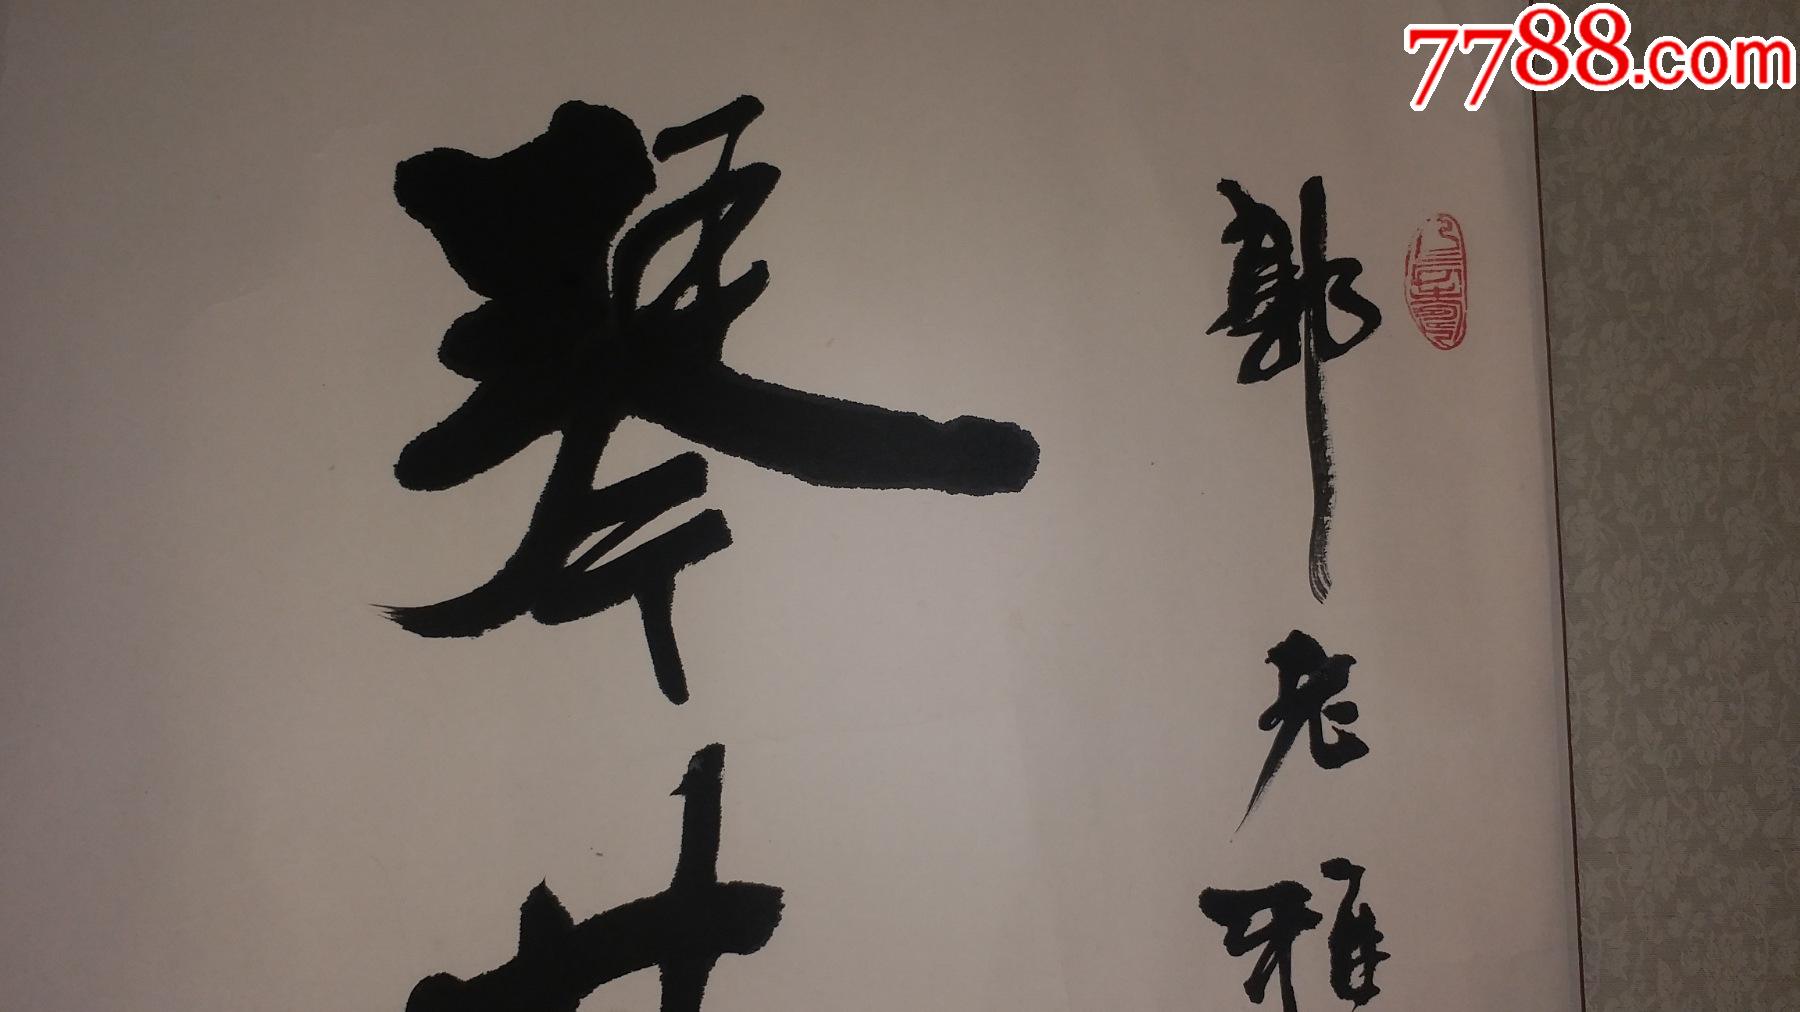 7788.com
郭老雅
琴